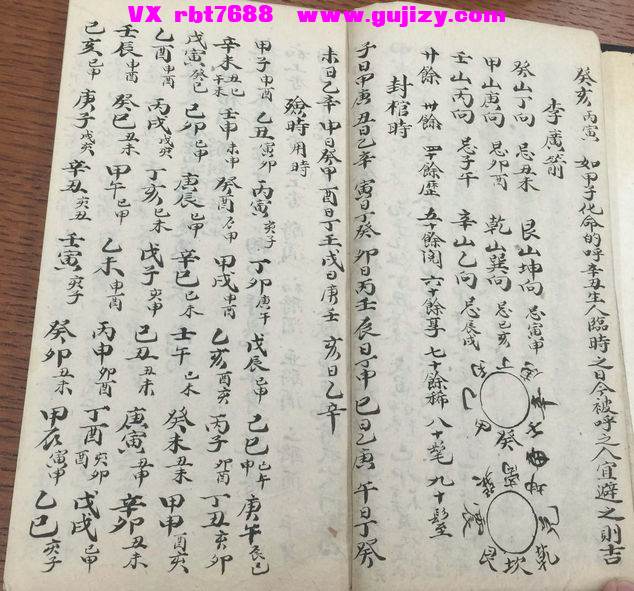 VX rbt7688 www.gujizy.com
癸亥 丙寅 如甲子化命的呼辛丑生人臨時之日今被呼之人宜避之則吉
李廣箭
癸山丁向 忌丑未 艮山坤向 忌寅申
甲山庚向 忌卯酉 乾山巽向 忌巳亥
壬山丙向 忌子午 辛山乙向 忌辰戌
廿餘 卅餘 四十餘歷 五十餘閏 六十餘享 七十餘稀 八十耄 九十
封棺時
子日甲庚 丑日乙辛 寅日丁癸 卯日丙壬 辰日丁甲 巳日乙庚 午日丁癸
未日乙辛 申日癸甲 酉日丁壬 戌日庚壬 亥日乙辛
殮時 用時
甲子 申酉 乙丑 寅卯 丙寅 亥子 丁卯 庚午 戊辰 巳申 己巳 午申 庚午 辰巳
辛未 丑巳 壬申 未申 癸酉 甲戌 申酉 乙亥 酉亥 丙子 卯酉 丁丑 亥卯
戊寅 癸巳 己卯 巳申 庚辰 巳申 辛巳 巳未 壬午 巳未 癸未 丑未 甲申 酉亥
乙酉 申酉 丙戌 戌亥 丁亥 巳未 戊子 寅申 己丑 丑未 庚寅 丑申 辛卯 丑未
壬辰 申酉 癸巳 丑未 甲午 巳申 乙未 申酉 丙申 卯酉 丁酉 亥卯 戊戌 巳申
己亥 巳申 庚子 戌亥 辛丑 亥丑 壬寅 亥子 癸卯 丑未 甲辰 寅申 乙巳 亥子
癸
坎
艮
乾